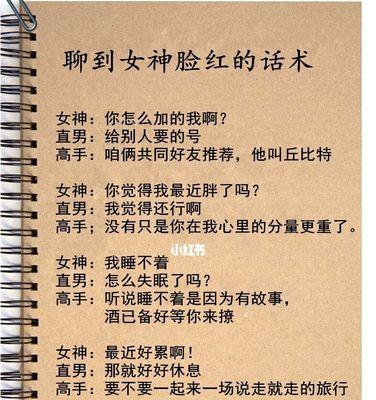 聊到女神脸红的话术
女神：你怎么加的我啊？
直男：给别人要的号
高手：咱俩共同好友推荐，他叫丘比特
女神：你觉得我最近胖了吗？
直男：我觉得还行啊
高手；没有只是你在我心里的分量更重了。
小红书
女神：我睡不着
直男：怎么失眠了吗？
高手：听说睡不着是因为有故事，
酒已备好等你来撩
女神：最近好累啊！
直男：那就好好休息
高手：要不要一起来一场说走就走的旅行